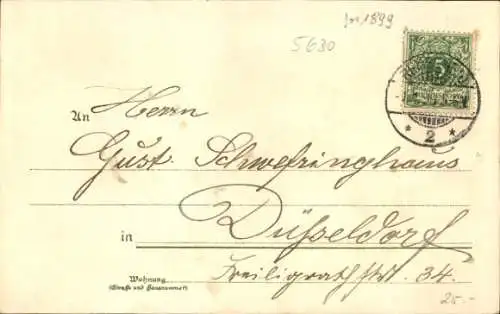 Jan 1899
5630
5
An Herrn
Gust. Schwefringhaus
in Düsseldorf
Freiligrathstr. 34.
Wohnung
(Straße und Hausnummer)
25.-
* 2 *